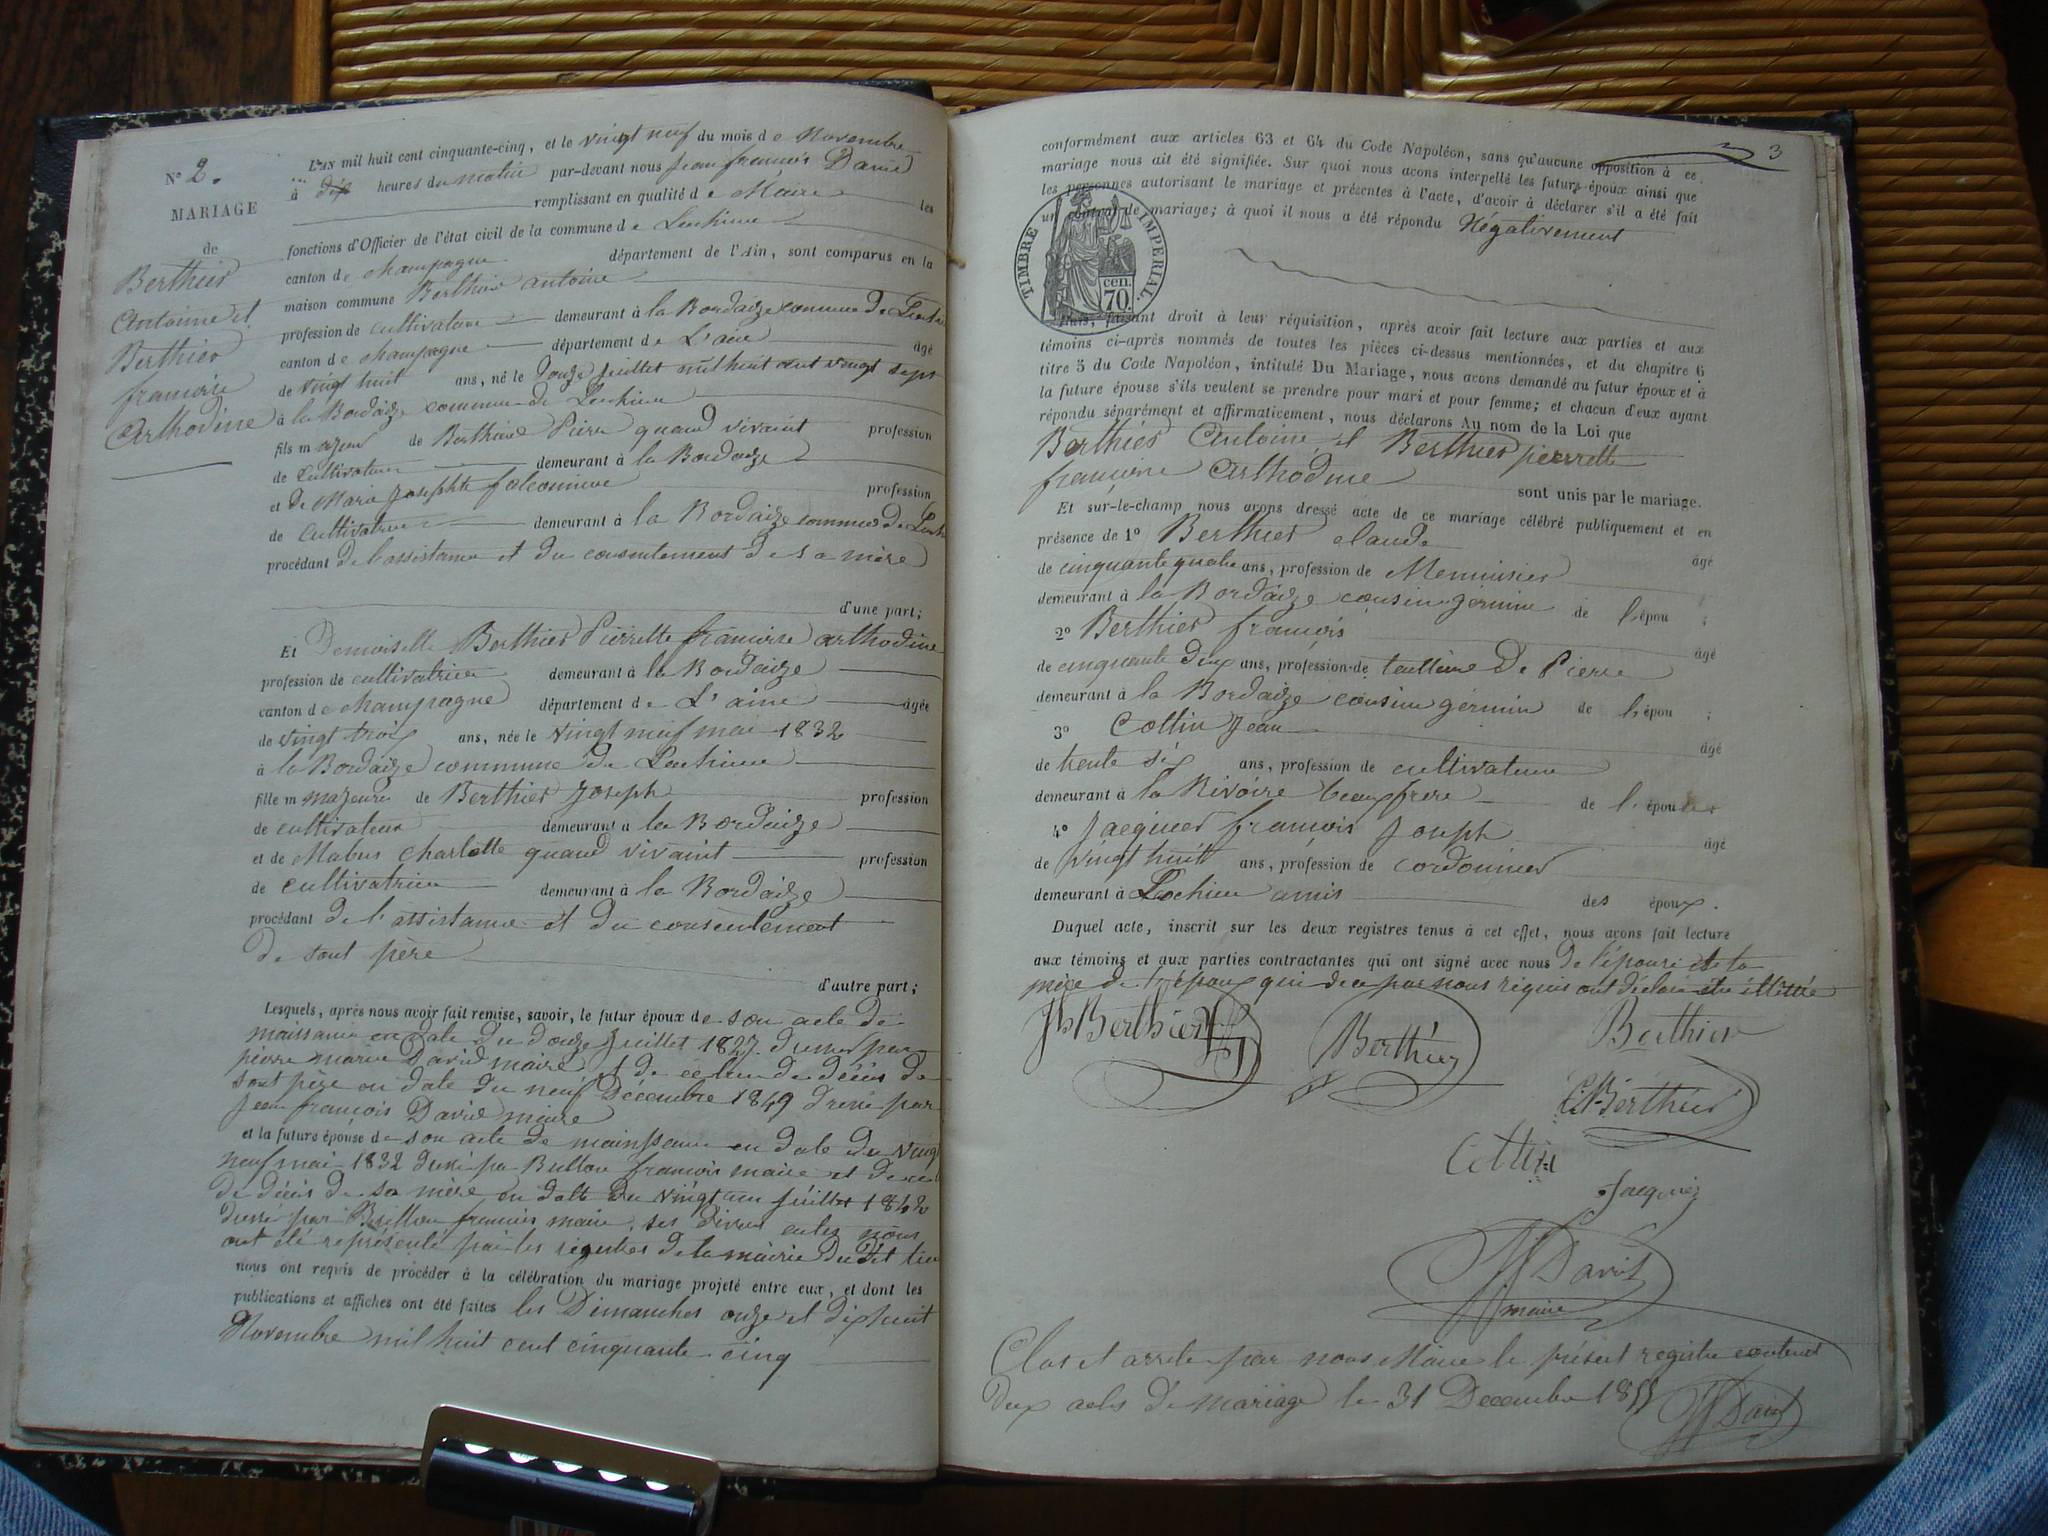 N° 2.
MARIAGE
de
Berthier
Antoine et
Berthier
francoise
Arthodine
L'AN mil huit cent cinquante-cinq, et le vingt neuf du mois de Novembre
à dix heures du matin par-devant nous jean francois David
remplissant en qualité de Maire les
fonctions d'Officier de l'état civil de la commune de Lochieu
canton de champagne département de l'Ain, sont comparus en la
maison commune Berthier antoine
profession de cultivateur demeurant à la Bordaize commune de
canton de champagne département de L'ain âgé
de vingt huit ans, né le Douze juillet mil huit cent vingt sept
à la Bordaize commune de Lochieu
fils majeur de Berthier Pierre quand vivait profession
de cultivateur demeurant à la Bordaize
et de Marie Josephte falconnier profession
de cultivatrice demeurant à la Bordaize commune de
procédant de l'assistance et du consentement de sa mère
d'une part;
Et Demoiselle Berthier Pierrette francoise arthodine
profession de cultivatrice demeurant à la Bordaize
canton de champagne département de L'aine âgée
de vingt trois ans, née le vingt neuf mai 1832
à la Bordaize commune de Lochieu
fille majeure de Berthier Joseph profession
de cultivateur demeurant à la Bordaize
et de Mabus Charlotte quand vivaint profession
de cultivatrice demeurant à la Bordaize
procédant de l'assistance et du consentement
de sont père
d'autre part;
Lesquels, après nous avoir fait remise, savoir, le futur époux de son acte de
naissance en date du douze juillet 1827 par
pierre marie David maire et de celui de décès de
sont père en date du neuf Décembre 1849 dressé par
Jean francois David maire
et la future épouse de son acte de en date du vingt
neuf mai 1832 par francois maire et de
de décès de sa mère en date du vingt un juillet 1842
par francois maire, ses divers actes nous
ont été représenté par les registres de la mairie du dit lieu
nous ont requis de procéder à la célébration du mariage projeté entre eux, et dont les
publications et affiches ont été faites les Dimanches onze et dixhuit
Novembre mil huit cent cinquante cinq
3
conformément aux articles 63 et 64 du Code Napoléon, sans qu'aucune opposition à ce
mariage nous ait été signifiée. Sur quoi nous avons interpellé les futurs époux ainsi que
les personnes autorisant le mariage et présentes à l'acte, d'avoir à déclarer s'il a été fait
un contrat de mariage; à quoi il nous a été répondu Négativement
TIMBRE IMPERIAL.
70 cen.
Puis, faisant droit à leur réquisition, après avoir fait lecture aux parties et aux
témoins ci-après nommés de toutes les pièces ci-dessus mentionnées, et du chapitre 6
titre 5 du Code Napoléon, intitulé Du Mariage, nous avons demandé au futur époux et à
la future épouse s'ils veulent se prendre pour mari et pour femme; et chacun d'eux ayant
répondu séparément et affirmativement, nous déclarons Au nom de la Loi que
Berthier Antoine et Berthier pierrette
francoise Arthodine sont unis par le mariage.
Et sur-le-champ nous avons dressé acte de ce mariage célébré publiquement et en
présence de 1° Berthier claude âgé
de cinquante quatre ans, profession de Menuisier
demeurant à la Bordaize cousin germin de l'épou ;
2° Berthier francois âgé
de cinquante deux ans, profession de tailleur de Pierre
demeurant à la Bordaize cousin germin de l'épou ;
3° Cottin Jean âgé
de trente six ans, profession de cultivateur
demeurant à la Rivoire beau frere de l'épou
4° Jacquier francois Joseph âgé
de vingt huit ans, profession de cordonnier
demeurant à Lochieu amis des époux.
Duquel acte, inscrit sur les deux registres tenus à cet effet, nous avons fait lecture
aux témoins et aux parties contractantes qui ont signé avec nous de l'épouse et de la
mère de l'époux qui de ce par nous requis ont déclaré être illettré
Jh Berthier
Berthier
Berthier
C. Berthier
Cottin
Jacquier
JF David
maire
Clos et arreté par nous Maire le présent registre contenant
Deux acts de mariage le 31 Decembre 1855 JF David